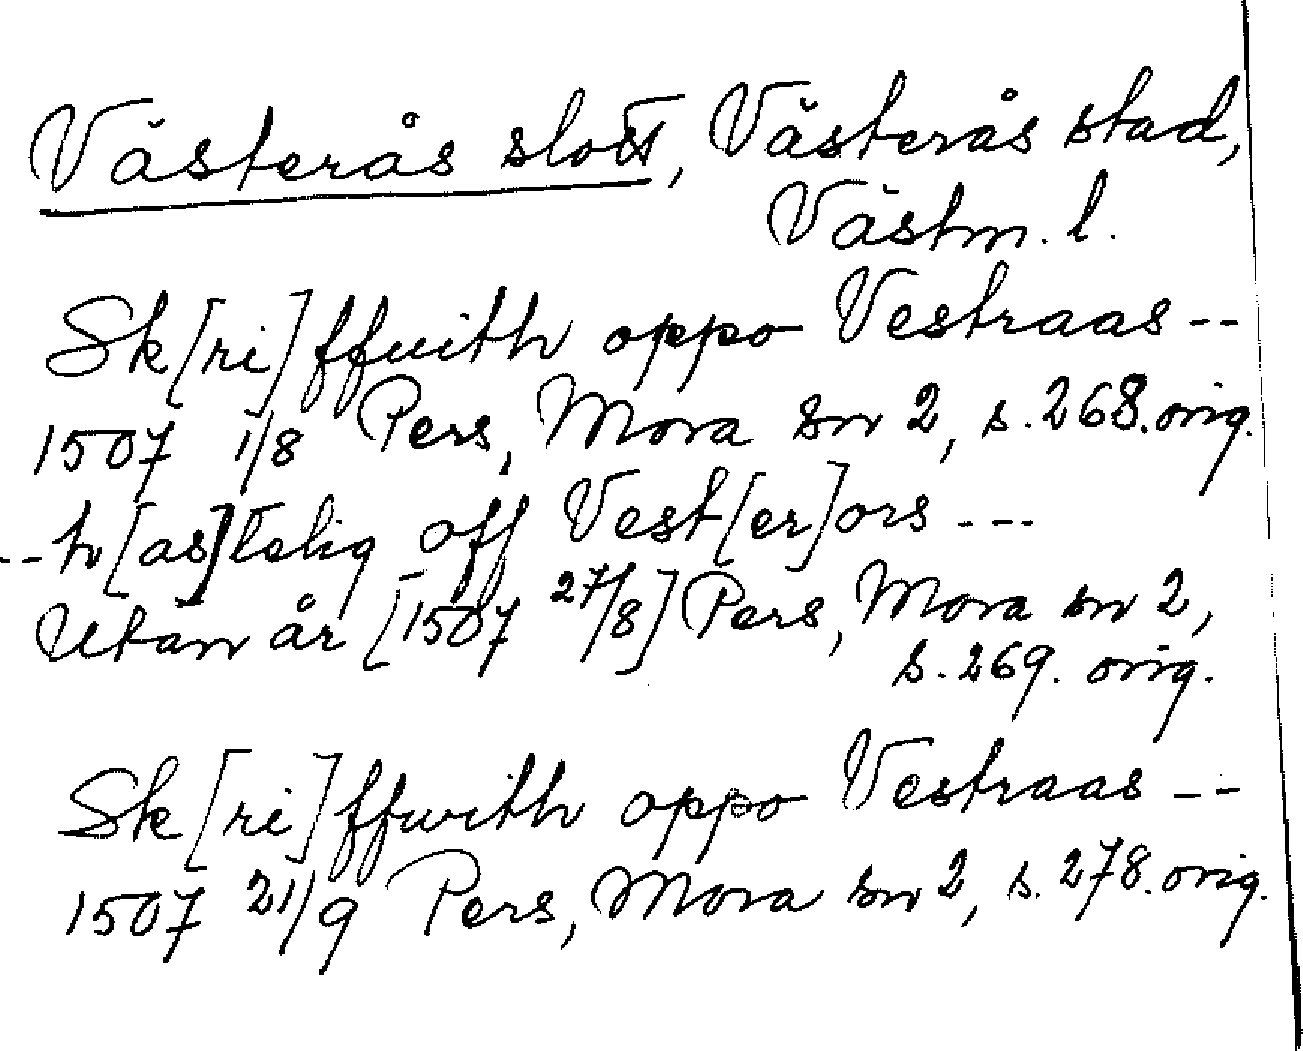 Västerås slott, Västerås stad,
Västm. l.
Sk[ri]ffuith oppo Vestraas --
1507 1/8 Pers, Mora sn 2, s. 268. orig.
-- h[as]telig off Vest[er]ors ---
Utan år [1507 27/8] Pers, Mora sn 2,
s. 269. orig.
Sk[ri]ffwith oppo Vestraas ---
1507 21/9 Pers, Mora sn 2, s. 278. orig.